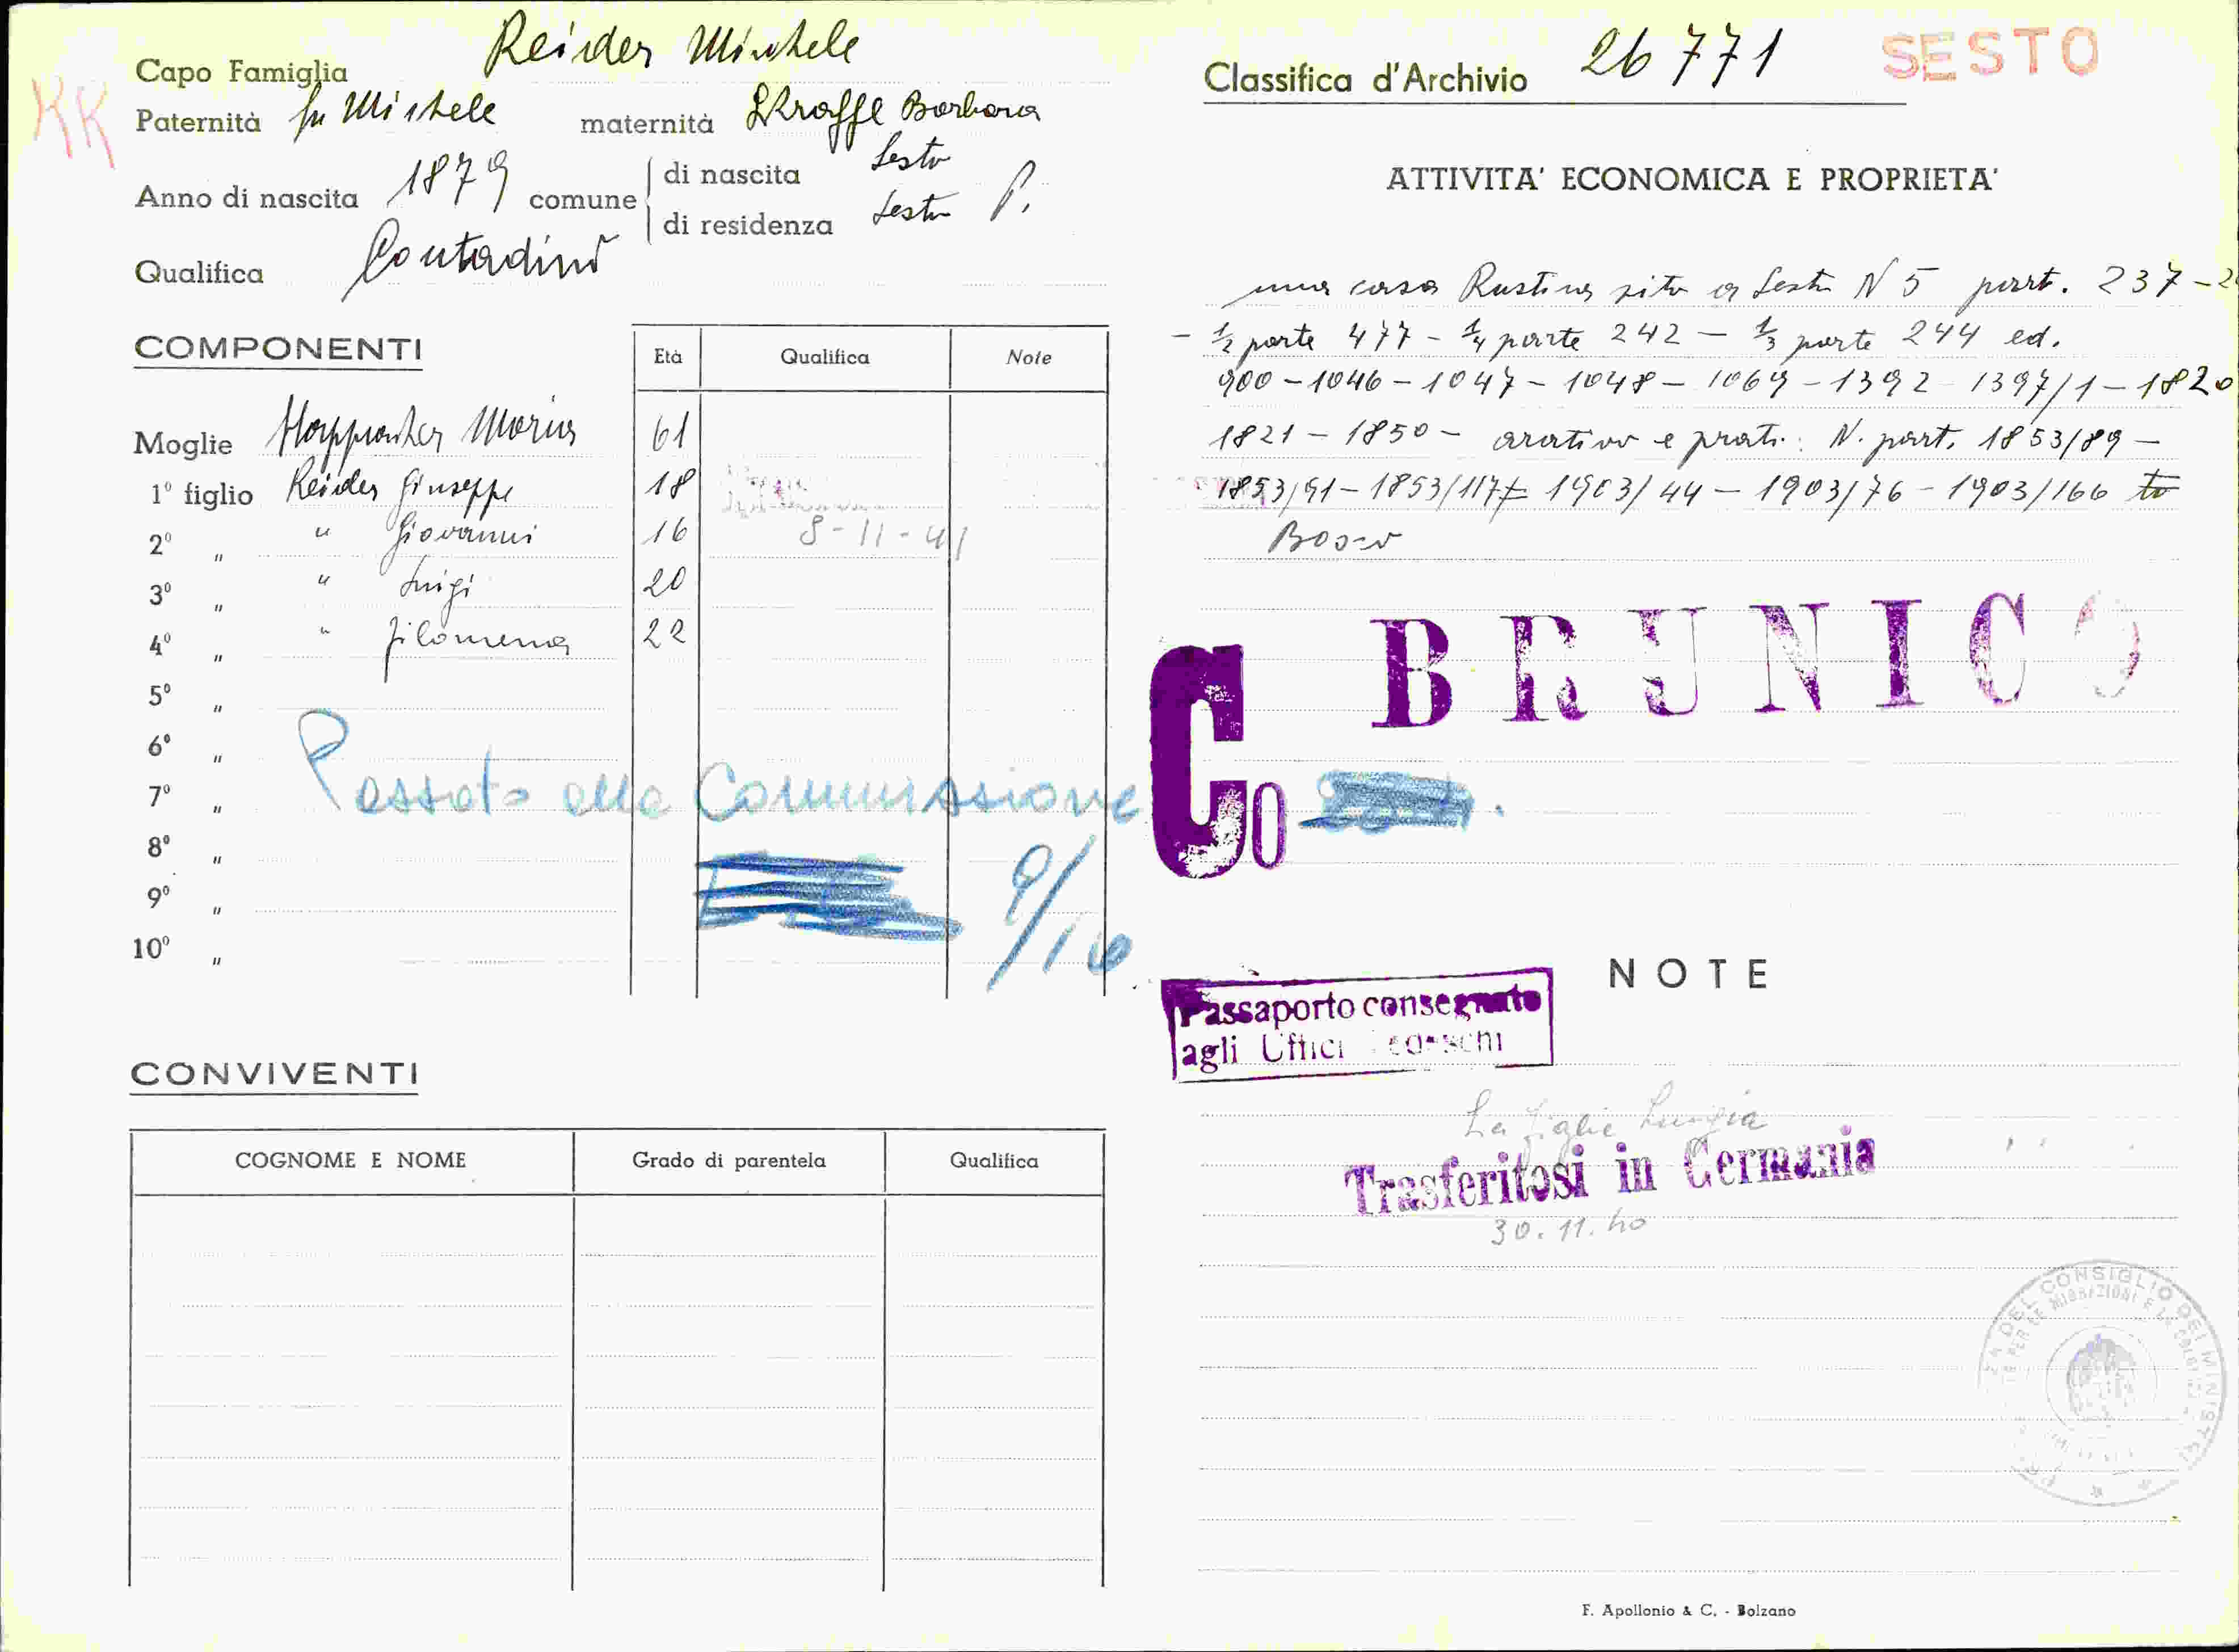 KK
Capo Famiglia Reider Michele
Paternità fu Michele maternità Barbara
Anno di nascita 1879 comune di nascita Sesto
di residenza Sesto P.
Qualifica Contadino
COMPONENTI
Età Qualifica Note
Moglie Maria 61
1º figlio Reider Giuseppe 18
2º " " Giovanni 16 8-11-41
3º " " Luigi 20
4º " " Filomena 22
5º "
6º "
7º "
8º "
9º "
10º "
Passato alla Commissione
9/16
CONVIVENTI
COGNOME E NOME Grado di parentela Qualifica
Classifica d'Archivio 26771 SESTO
ATTIVITA' ECONOMICA E PROPRIETA'
una casa Rustica sito a Sesto N 5 part. 237 -
- 1/2 parte 477 - 1/4 parte 242 - 1/3 parte 244 ed.
900 - 1046 - 1047 - 1048 - 1069 - 1392 - 1397/1 - 1820
1821 - 1850 - arativo e prati. N. part. 1853/89 -
1853/91 - 1853/117 - 1903/44 - 1903/76 - 1903/166
Bosco
BRUNICO
Co
NOTE
Passaporto consegnato
agli Uffici
La figlia Luigia
Trasferitosi in Germania
30.11.40
F. Apollonio & C. - Bolzano